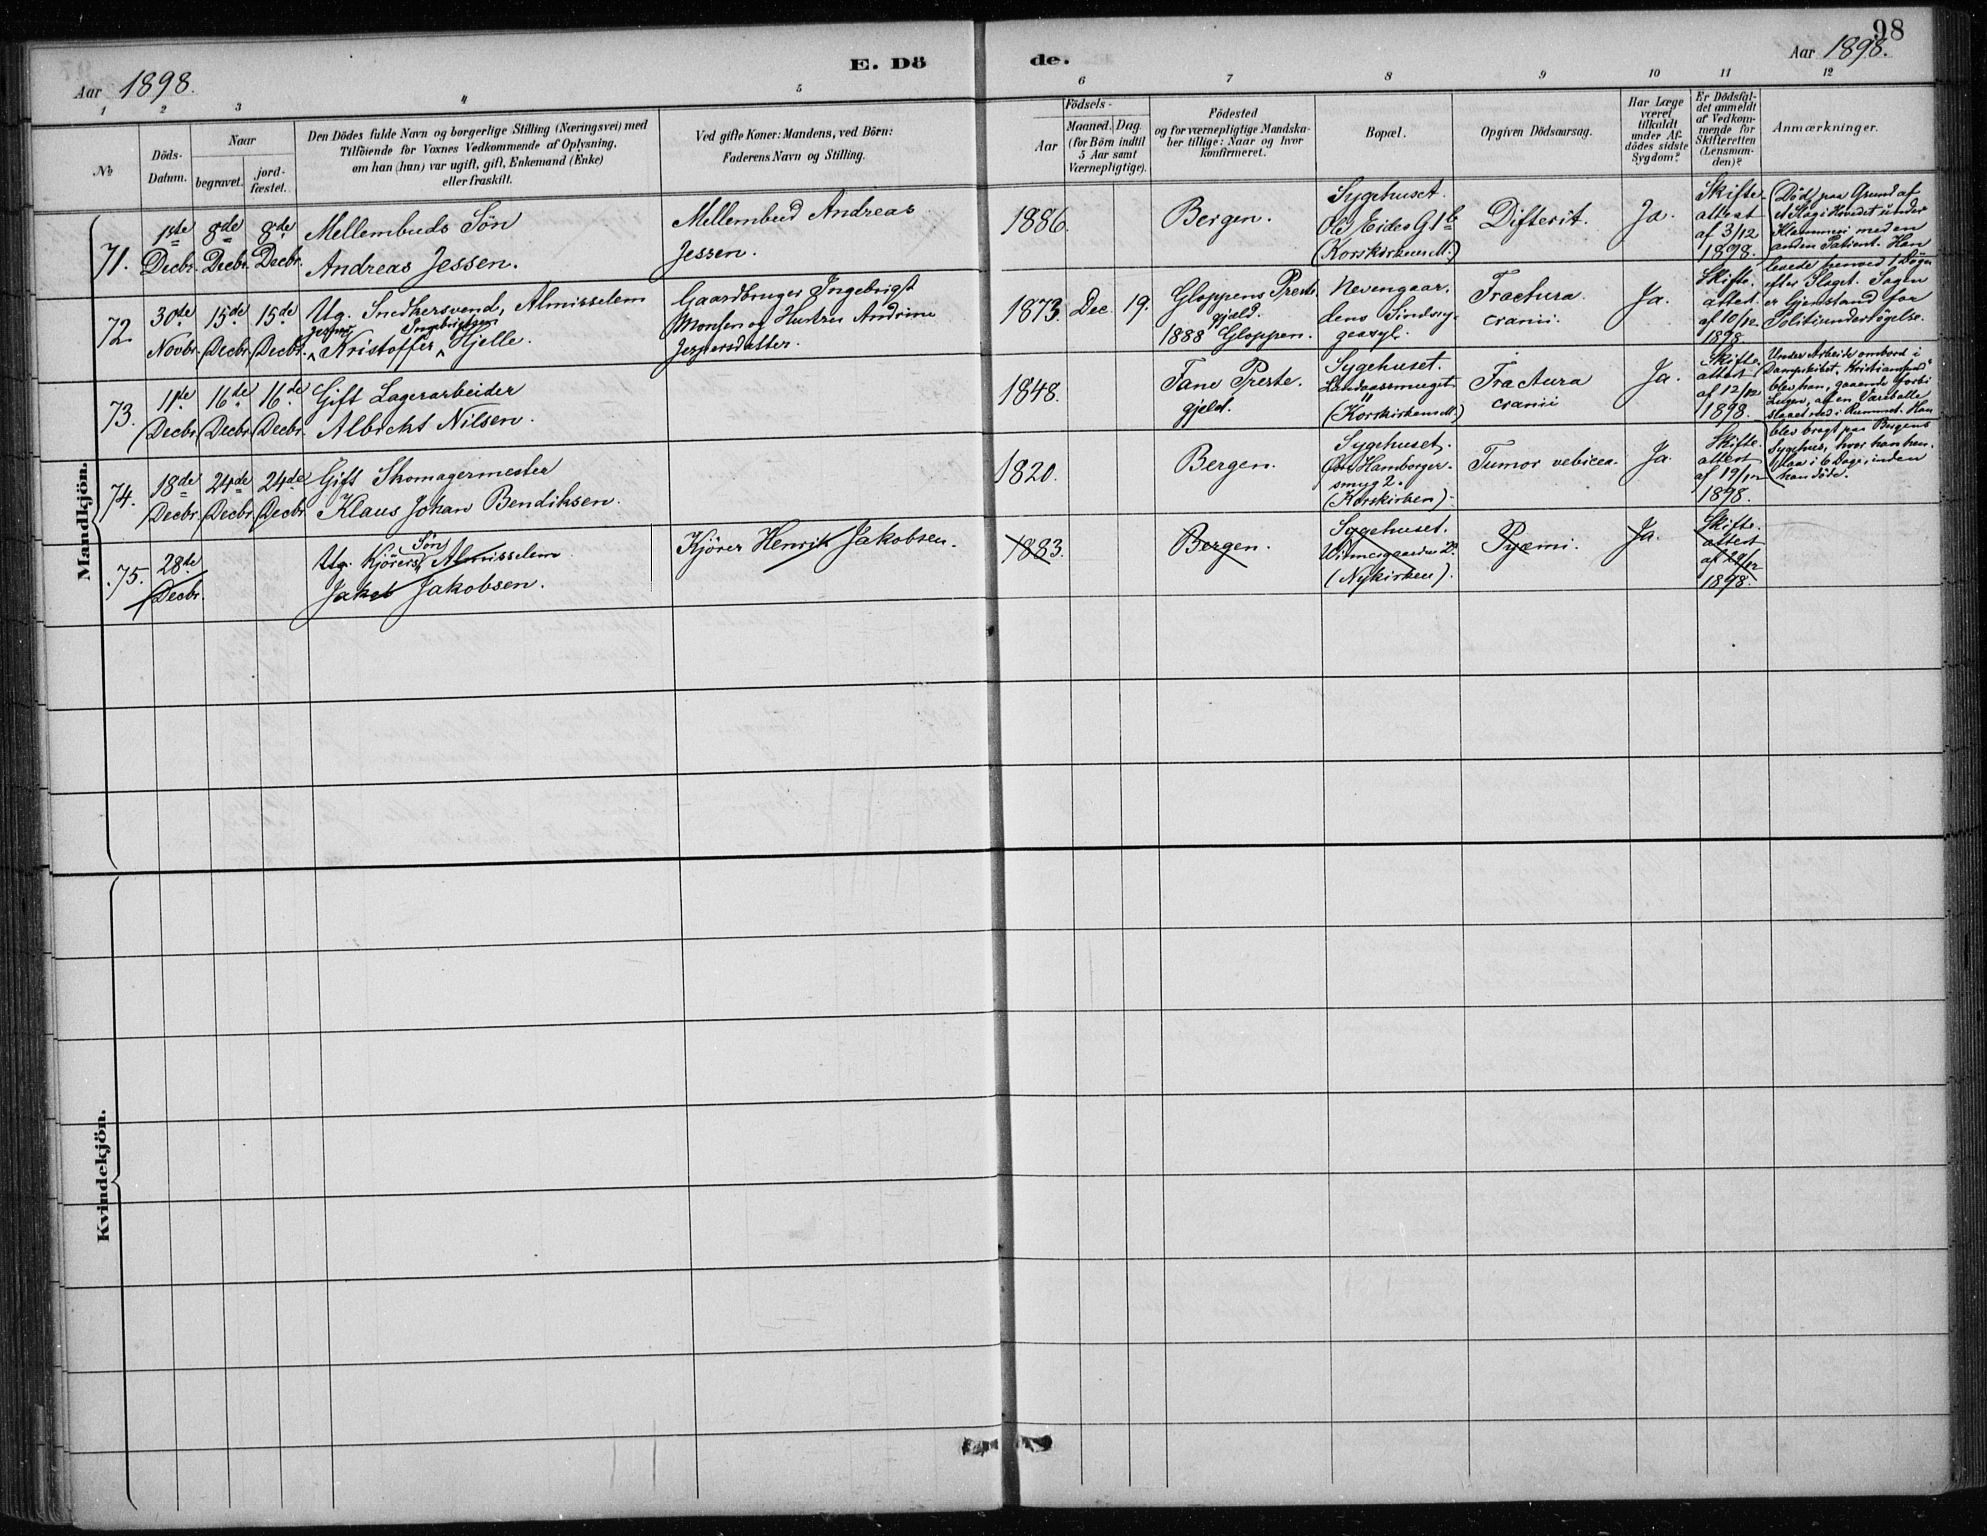 98
Aar 1898.
E. Dö
de.
Aar 1898.
1
2
3
4
5
6
7
8
9
10
11
12
№
Döds-
Datum.
Naar
begravet.
jord-
fæstet.
Den Dödes fulde Navn og borgerlige Stilling (Næringsvei) med
Tilföiende for Voxnes Vedkommende af Oplysning,
om han (hun) var ugift, gift, Enkemand (Enke)
eller fraskilt.
Ved gifte Koner: Mandens, ved Börn:
Faderens Navn og Stilling.
Födsels-
Aar
Maaned.
Dag.
(for Börn indtil
5 Aar samt
Værnepligtige).
Födested
og for værnepligtige Mandska-
ber tillige: Naar og hvor
konfirmeret.
Bopæl.
Opgiven Dödsaarsag.
Har Læge
været
tilkaldt
under Af-
dödes sidste
Sygdom?
Er Dödsfal-
det anmeldt
af Vedkom-
mende for
Skifteretten
(Lensman-
den)?
Anmærkninger.
Mandkjön.
71.
1ste
Decbr.
8de
Decbr.
8de
Decbr.
Mellembuds Sön
Andreas Jessen.
Mellembud Andreas
Jessen.
1886.
Bergen.
Sygehuset.
Ole Eides Gl
(Korskirken M.)
Difterit.
Ja.
Skifte-
attest
af 3/12
1898.
(Död paa Grund af
et Slag i Hovedet under
Klammeri med en
anden Patient. Han
levede henved 1 Døgn
efter Slaget. Sagen
er Gjenstand for
Politiundersøgelse.
72.
30de
Novbr.
15de
Decbr.
15de
Decbr.
Ug. Snedkersvend, Almisselem
Jesper Ingebrigtsen
Kristoffer Hjelle.
Gaardbruger Ingebrigt
Monsen og Hustru Andrine
Jespersdatter.
1873.
Dec.
19.
Gloppens Preste-
gjæld.
1888 Gloppen.
Nevengaar-
dens Sindssy-
geasyl.
Fractura
cranii.
Ja.
Skifte-
attest
af 10/12
1898
73.
11de
Decbr.
16de
Decbr.
16de
Decbr.
Gift Lagerarbeider
Albrickt Nilsen.
1848.
Fane Preste-
gjeld.
Sygehuset.
(Korskirken M.)
Fractura
cranii
Ja.
Skifte-
attest
af 12/12
1898.
Under Arbeide ombord i
Dampskibet "Kristiansund"
blev han, gaaende forbi
Lugen, af en Vareballe
slaaet ned i Rummet. Han
blev bragt paa Bergens
Sygehus, hvor han hen-
laa i 6 Dage, inden
han döde.
74.
18de
Decbr.
24de
Decbr.
24de
Decbr.
Gift Skomagermester
Klaus Johan Bendiksen.
1820.
Bergen.
Sygehuset,
Østre Hamborger-
smug 2.
(Korskirken).
Tumor vebicea.
Ja.
Skifte-
attest
af 19/12
1898.
75.
28de
Decbr.
Sön
Ug. Kjörers Almisselem.
Jakob Jakobsen.
Kjörer Henrik Jakobsen.
1883.
Bergen.
Sygehuset.
(Nykirken).
Pyæmi.
Ja.
Skifte-
attest
af 29/12
1898.
Kvindekjön.